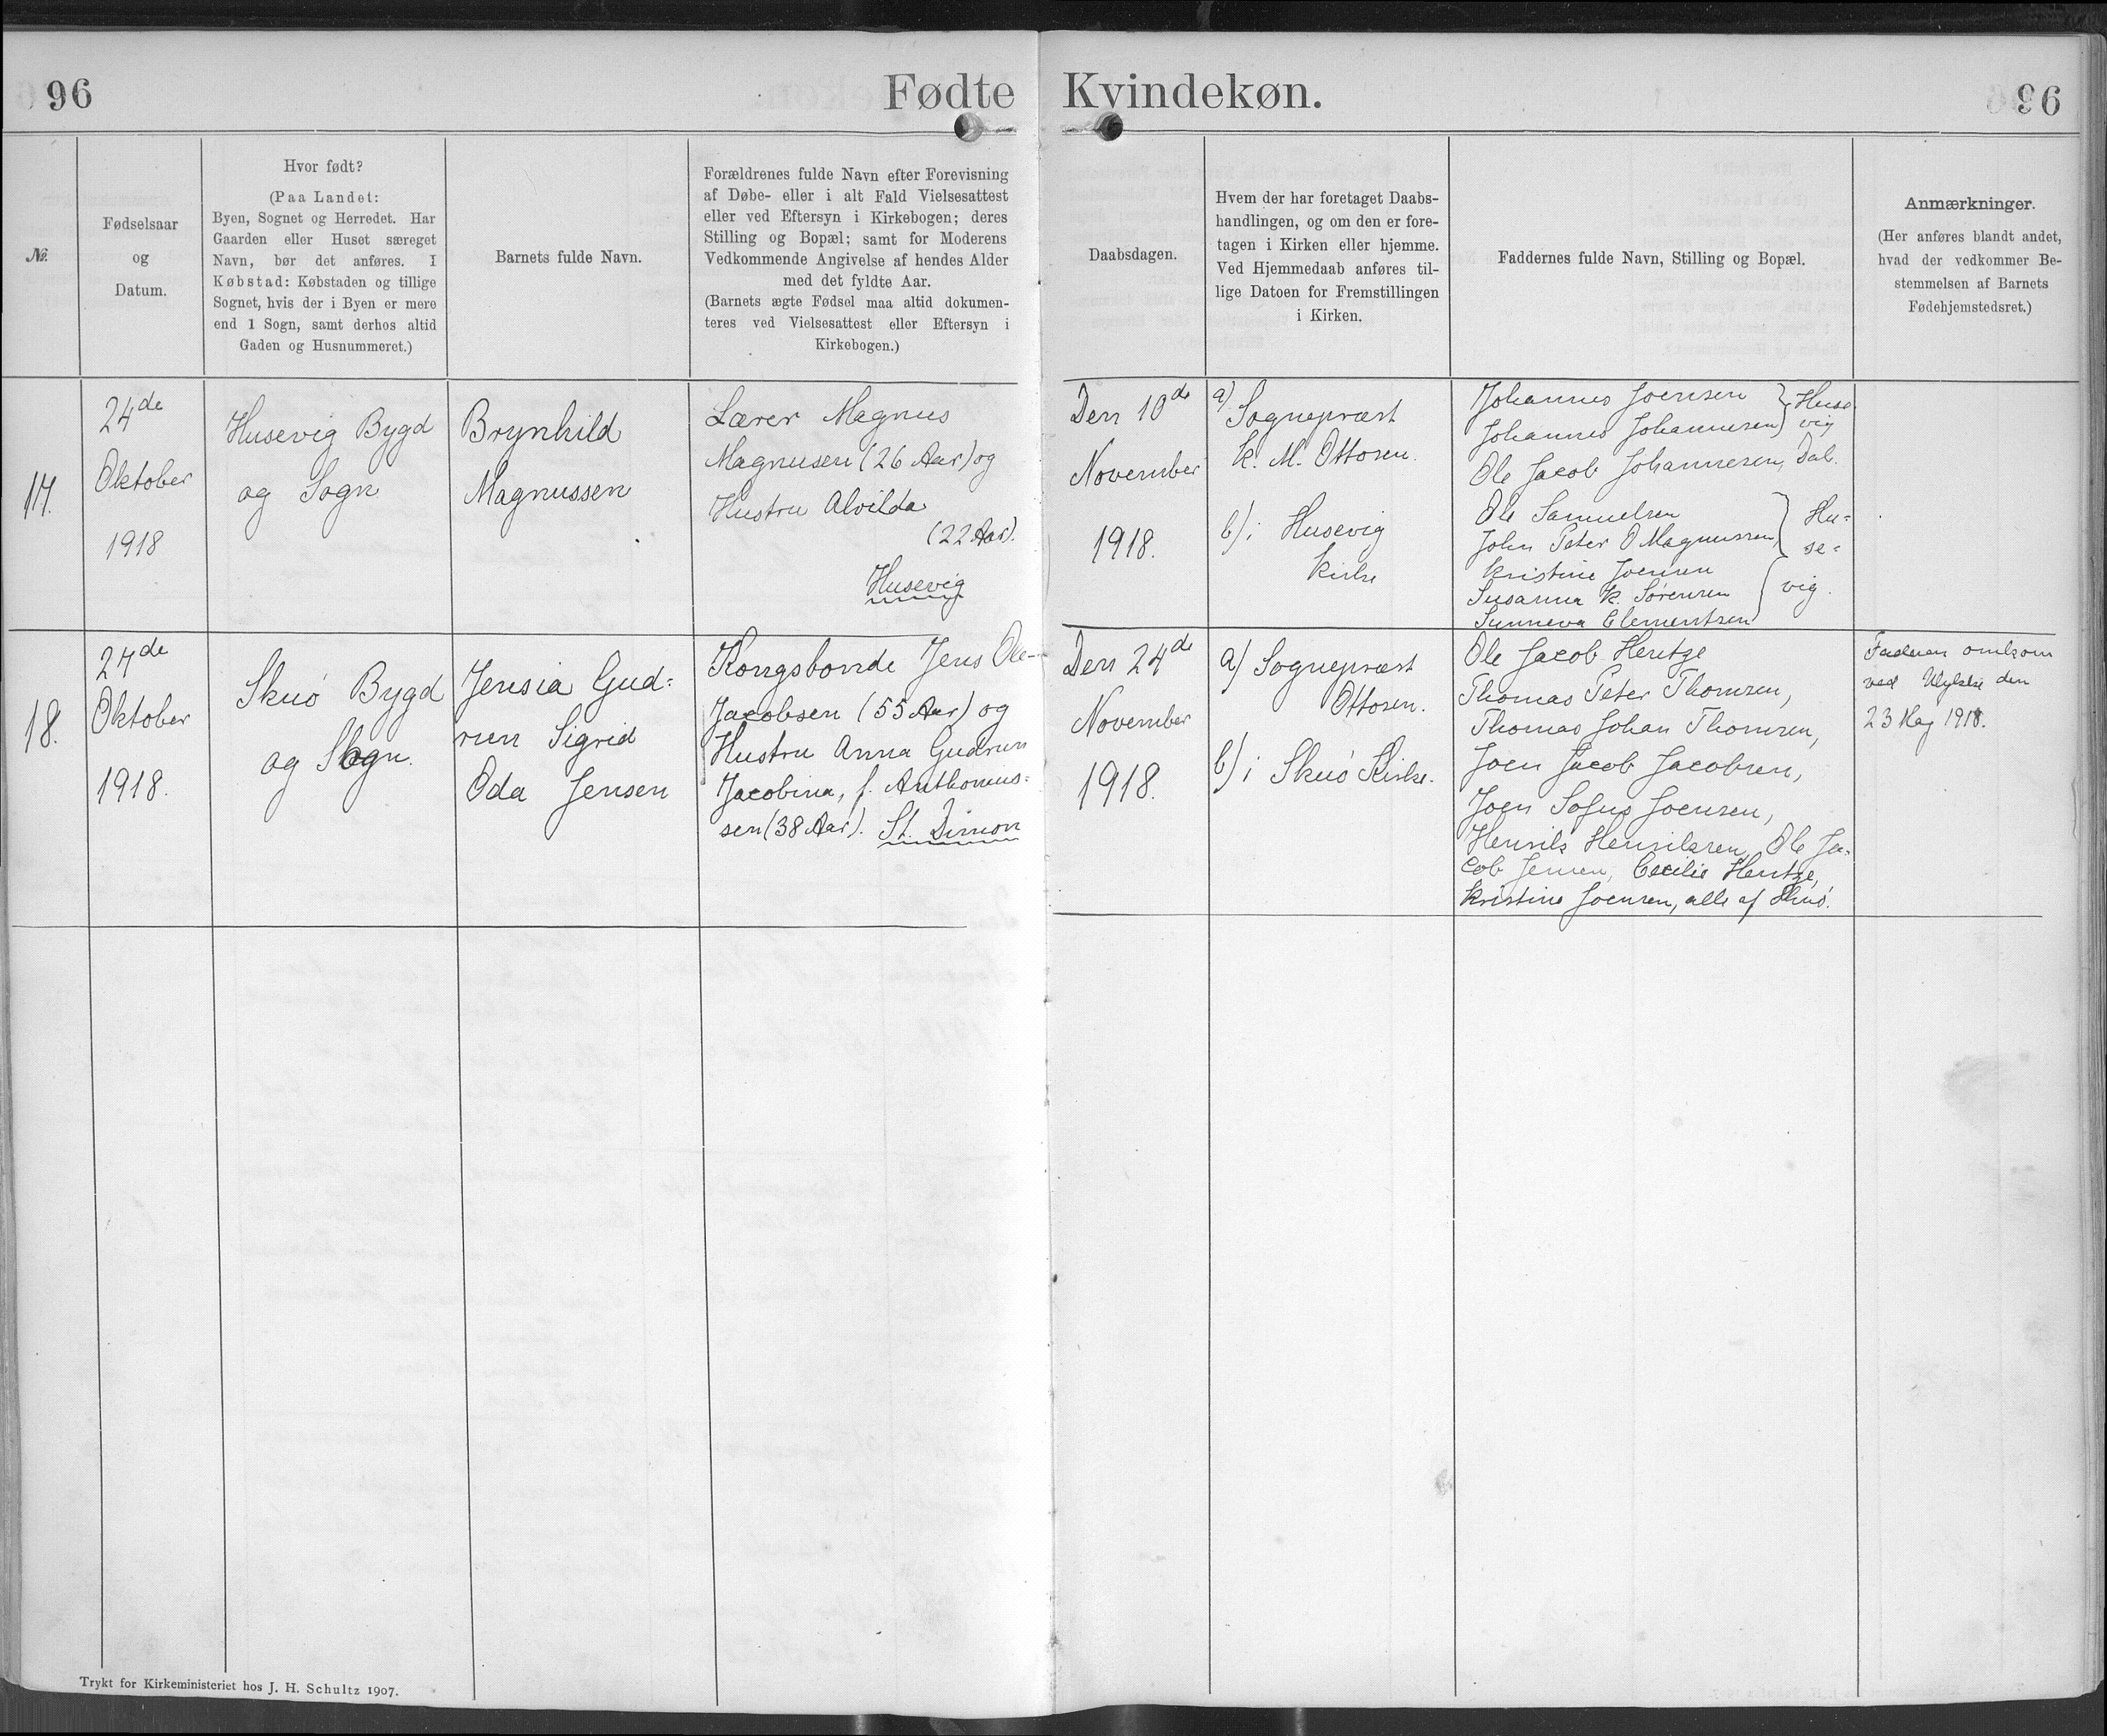 96
Fødte
Kvindekøn.
96
№
Fødselsaar
og
Datum.
Hvor født?
(Paa Landet:
Byen, Sognet og Herredet. Har
Gaarden eller Huset særeget
Navn, bør det anføres. I
Købstad: Købstaden og tillige
Sognet, hvis der i Byen er mere
end 1 Sogn, samt derhos altid
Gaden og Husnummeret.)
Barnets fulde Navn.
Forældrenes fulde Navn efter Forevisning
af Døbe- eller i alt Fald Vielsesattest
eller ved Eftersyn i Kirkebogen; deres
Stilling og Bopæl; samt for Moderens
Vedkommende Angivelse af hendes Alder
med det fyldte Aar.
(Barnets ægte Fødsel maa altid dokumen-
teres ved Vielsesattest eller Eftersyn i
Kirkebogen.)
Daabsdagen.
Hvem der har foretaget Daabs-
handlingen, og om den er fore-
tagen i Kirken eller hjemme.
Ved Hjemmedaab anføres til-
lige Datoen for Fremstillingen
i Kirken.
Faddernes fulde Navn, Stilling og Bopæl.
Anmærkninger.
(Her anføres blandt andet,
hvad der vedkommer Be-
stemmelsen af Barnets
Fødehjemstedsret.)
17.
24de
Oktober
1918
Husevig Bygd
og Sogn
Brynhild
Magnussen
Lærer Magnus
Magnusen (26 Aar) og
Hustru Alvilda
(22 Aar).
Husevig
Den 10de
November
1918.
a) Sognepræst
K. M. Ottosen.
b) i Husevig
Kirke
Johannes Joensen
Johannes Johannesen } Huse
vig
Ole Jacob Johannesen, Dal.
Ole Samuelsen
John Peter O Magnussen
Kristine Joensen
Susanna K. Sørensen
Sunneva Clementsen
} Hu=
se=
vig.
18.
27de
Oktober
1918.
Skuö Bygd
og Sogn.
Jensia Gud=
run Sigrid
Oda Jensen
Kongsbonde Jens Ole-
Jacobsen (55 Aar) og
Hustru Anna Gudrun
Jacobina, f. Anthonius=
sen (38 Aar). St. Dimon
Den 24de
November
1918.
a) Sognepræst
Ottosen.
b) i Skuö Kirke.
Ole Jacob Hentze
Thomas Peter Thomsen,
Thomas Johan Thomsen,
Joen Jacob Jacobsen,
Joen Sofus Joensen,
Henrik Henriksen, Ole Ja=
cob Jensen, Cecilie Hentze,
Kristine Joensen, alle af Skuö.
Faderen omkom
ved Ulykke den
23 Maj 1918.
Trykt for Kirkeministeriet hos J. H. Schultz 1907.